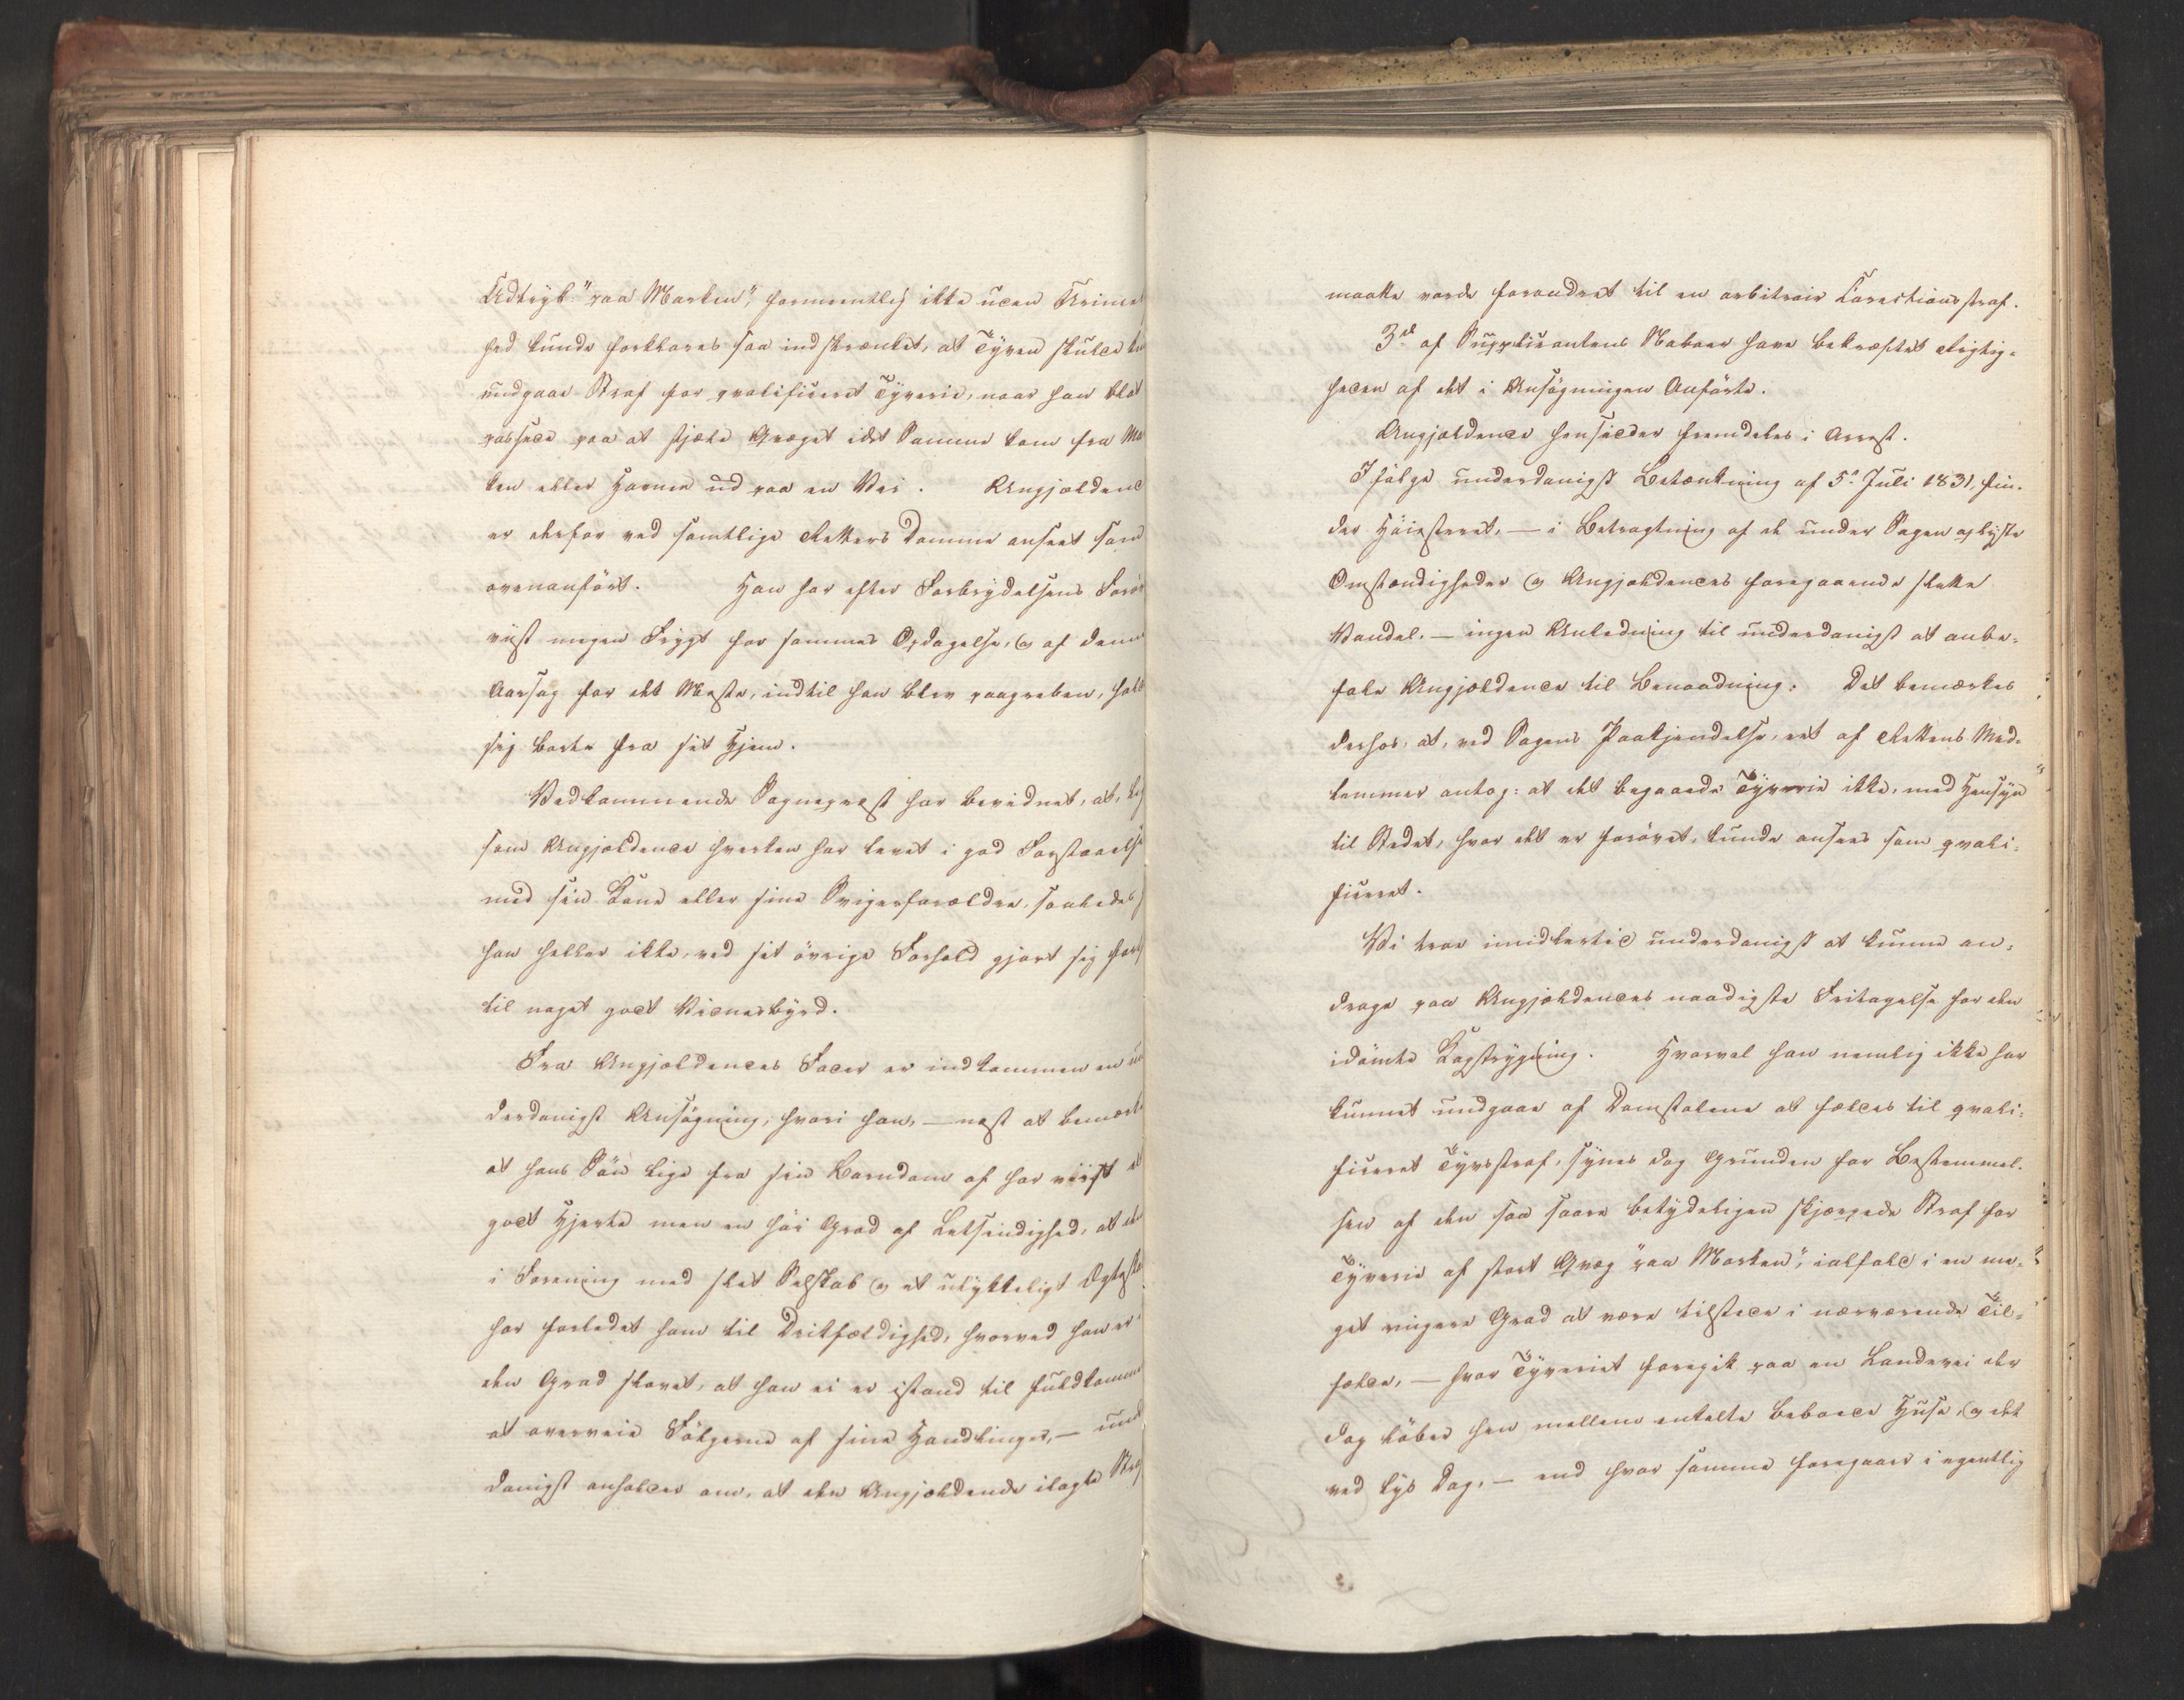 Udtryk "paa Marken", formeentlig ikke uden Urime
hed kunde forklares saa indskrænket, at Tyven skulde ku
undgaae Straf for qvalificeret Tyverie, naar han blot
passede paa at stjæle Qvæget idet Samme kom fra Ma
ken eller Havnen ud paa en Vei. Angjældend
er derfor ved samtlige Retters Domme anseet som
ovenanført. Han har efter Forbrydelsens Forøv
viist megen Frygt for sammes Opdagelse, og af denne
Aarsag for det Meste, indtil han blev paagreben, hold
sig borte fra sit Hjem.
Vedkommende Sognepræst har bevidnet, at, lig
som Angjældende hverken har levet i god Forstaaelse
med sin Kone eller sine Svigerforældre, saaledes
han heller ikke, ved sit øvrige Forhold gjort sig
til noget godt Vidnesbyrd.
Fra Angjældendes Fader er indkommen en un
derdanigst Ansøgning, hvori han, — næst at bemærke
at hans Søn lige fra sin Barndom af har viist et
godt Hjerte men en høi Grad af Letsindighed, at den
i Forening med slet Selskab og et ulykkeligt Ægtesk
har forledet ham til Drikfældighed, hvorved han er
den Grad sløvet, at han ei er istand til fuldkomment
at overveie Følgerne af sine Handlinger, — und
danigst anholder om, at den Angjældende ilagte Straf
maatte vorde forandret til en arbitrair Corectionsstraf.
3de af Supplicantens Naboer have bekræftet Rigtig-
heden af det i Ansøgningen Anførte.
Angjældende hensidder fremdeles i Arrest.
Ifølge underdanigst Betænkning af 5te Juli 1831, fin-
der Høiesteret, — i Betragtning af de under Sagen oplyste
Omstændigheder og Angjældendes foregaaende slette
Vandel. — ingen Anledning til underdanigst at anbe-
fale Angjældende til Benaadning. Det bemærkes
derhos, at, ved Sagens Paakjendelse, eet af Rettens Med-
lemmer antog: at det begaaede Tyverie ikke, med Hensyn
til Stedet, hvor det er forøvet, kunde ansees som qvali-
ficeret.
Vi troe imidlertid underdanigst at kunne an-
drage paa Angjældendes naadigste Fritagelse for den
idømte Kagstrygning. Hvorvel han nemlig ikke har
kunnet undgaae af Domstolene at fældes til qvali-
ficeret Tyvsstraf, synes dog Grunden for Bestemmel-
sen af den saa saare betydeligen skjærpede Straf for
Tyverie af stort Qvæg "paa Marken", ialfald i en me-
get ringere Grad at være tilstede i nærværende Til-
fælde, — hvor Tyveriet foregik paa en Landevei der
dog løber hen mellem enkelte beboede Huse, og det
ved lys Dag, — end hvor samme foregaaer i egentlig